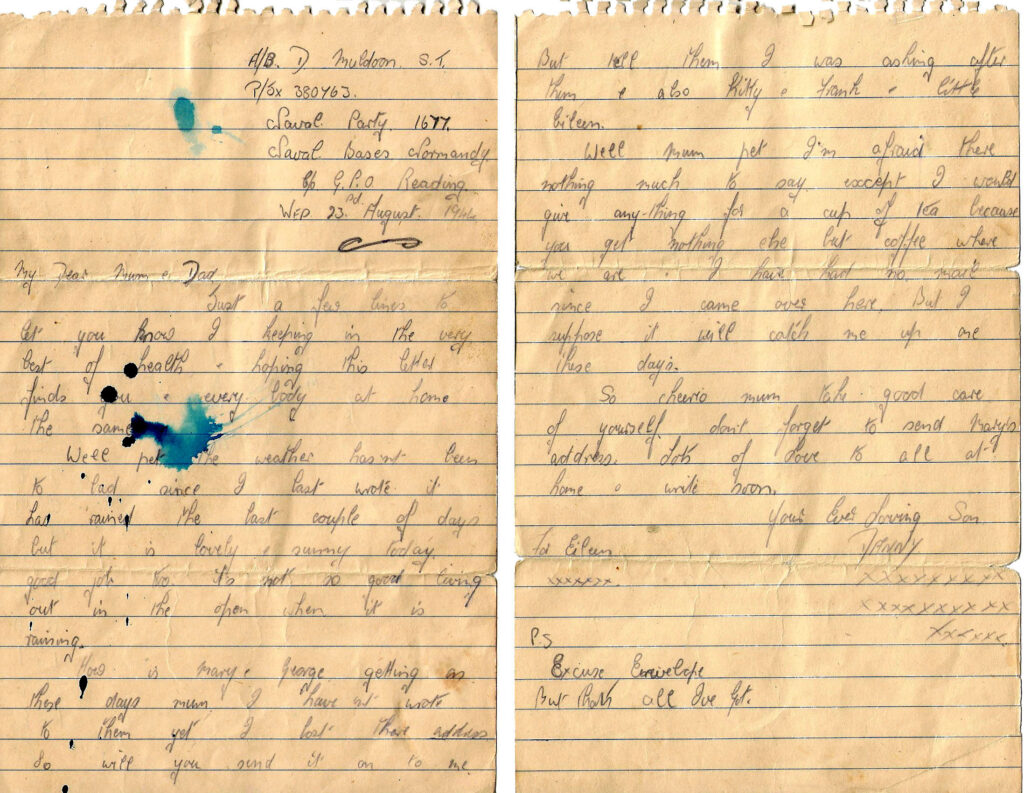 A/B. D Muldoon. S.T.
P/Jx 380763.
Naval Party. 1677.
Naval Bases Normandy.
C/o G.P.O. Reading.
WED. 23rd August. 1944
My Dear Mum & Dad
Just a few lines to
let you know I keeping in the very
best of health & hoping this letter
finds you & every body at home
the same
Well pet the weather hasn't been
to bad since I last wrote it
has rained the last couple of days
but it is lovely & sunny today.
good job too. it's not so good living
out in the open when it is
raining.
How is Mary & George getting on
these days mum, I have'nt wrote
to them yet I lost there address
So will you send it on to me
But tell them I was asking after
them & also Kitty & Frank & little
Eileen.
Well mum pet I'm afraid there
nothing much to say except I would
give any-thing for a cup of tea because
you get nothing else but coffee where
we are. I have had no mail
since I came over here, But I
suppose it will catch me up one
these day's.
So cheerio mum take good care
of yourself. don't forget to send Mary's
address. Lots of Love to all at
home & write soon.
Your Ever Loving Son.
DANNY
For Eileen
xxxxxx.
xxxxxxxxx
xxxxxxxxxx
xxxxxx.
P.S
Excuse Envelope
But thats all I've Got.